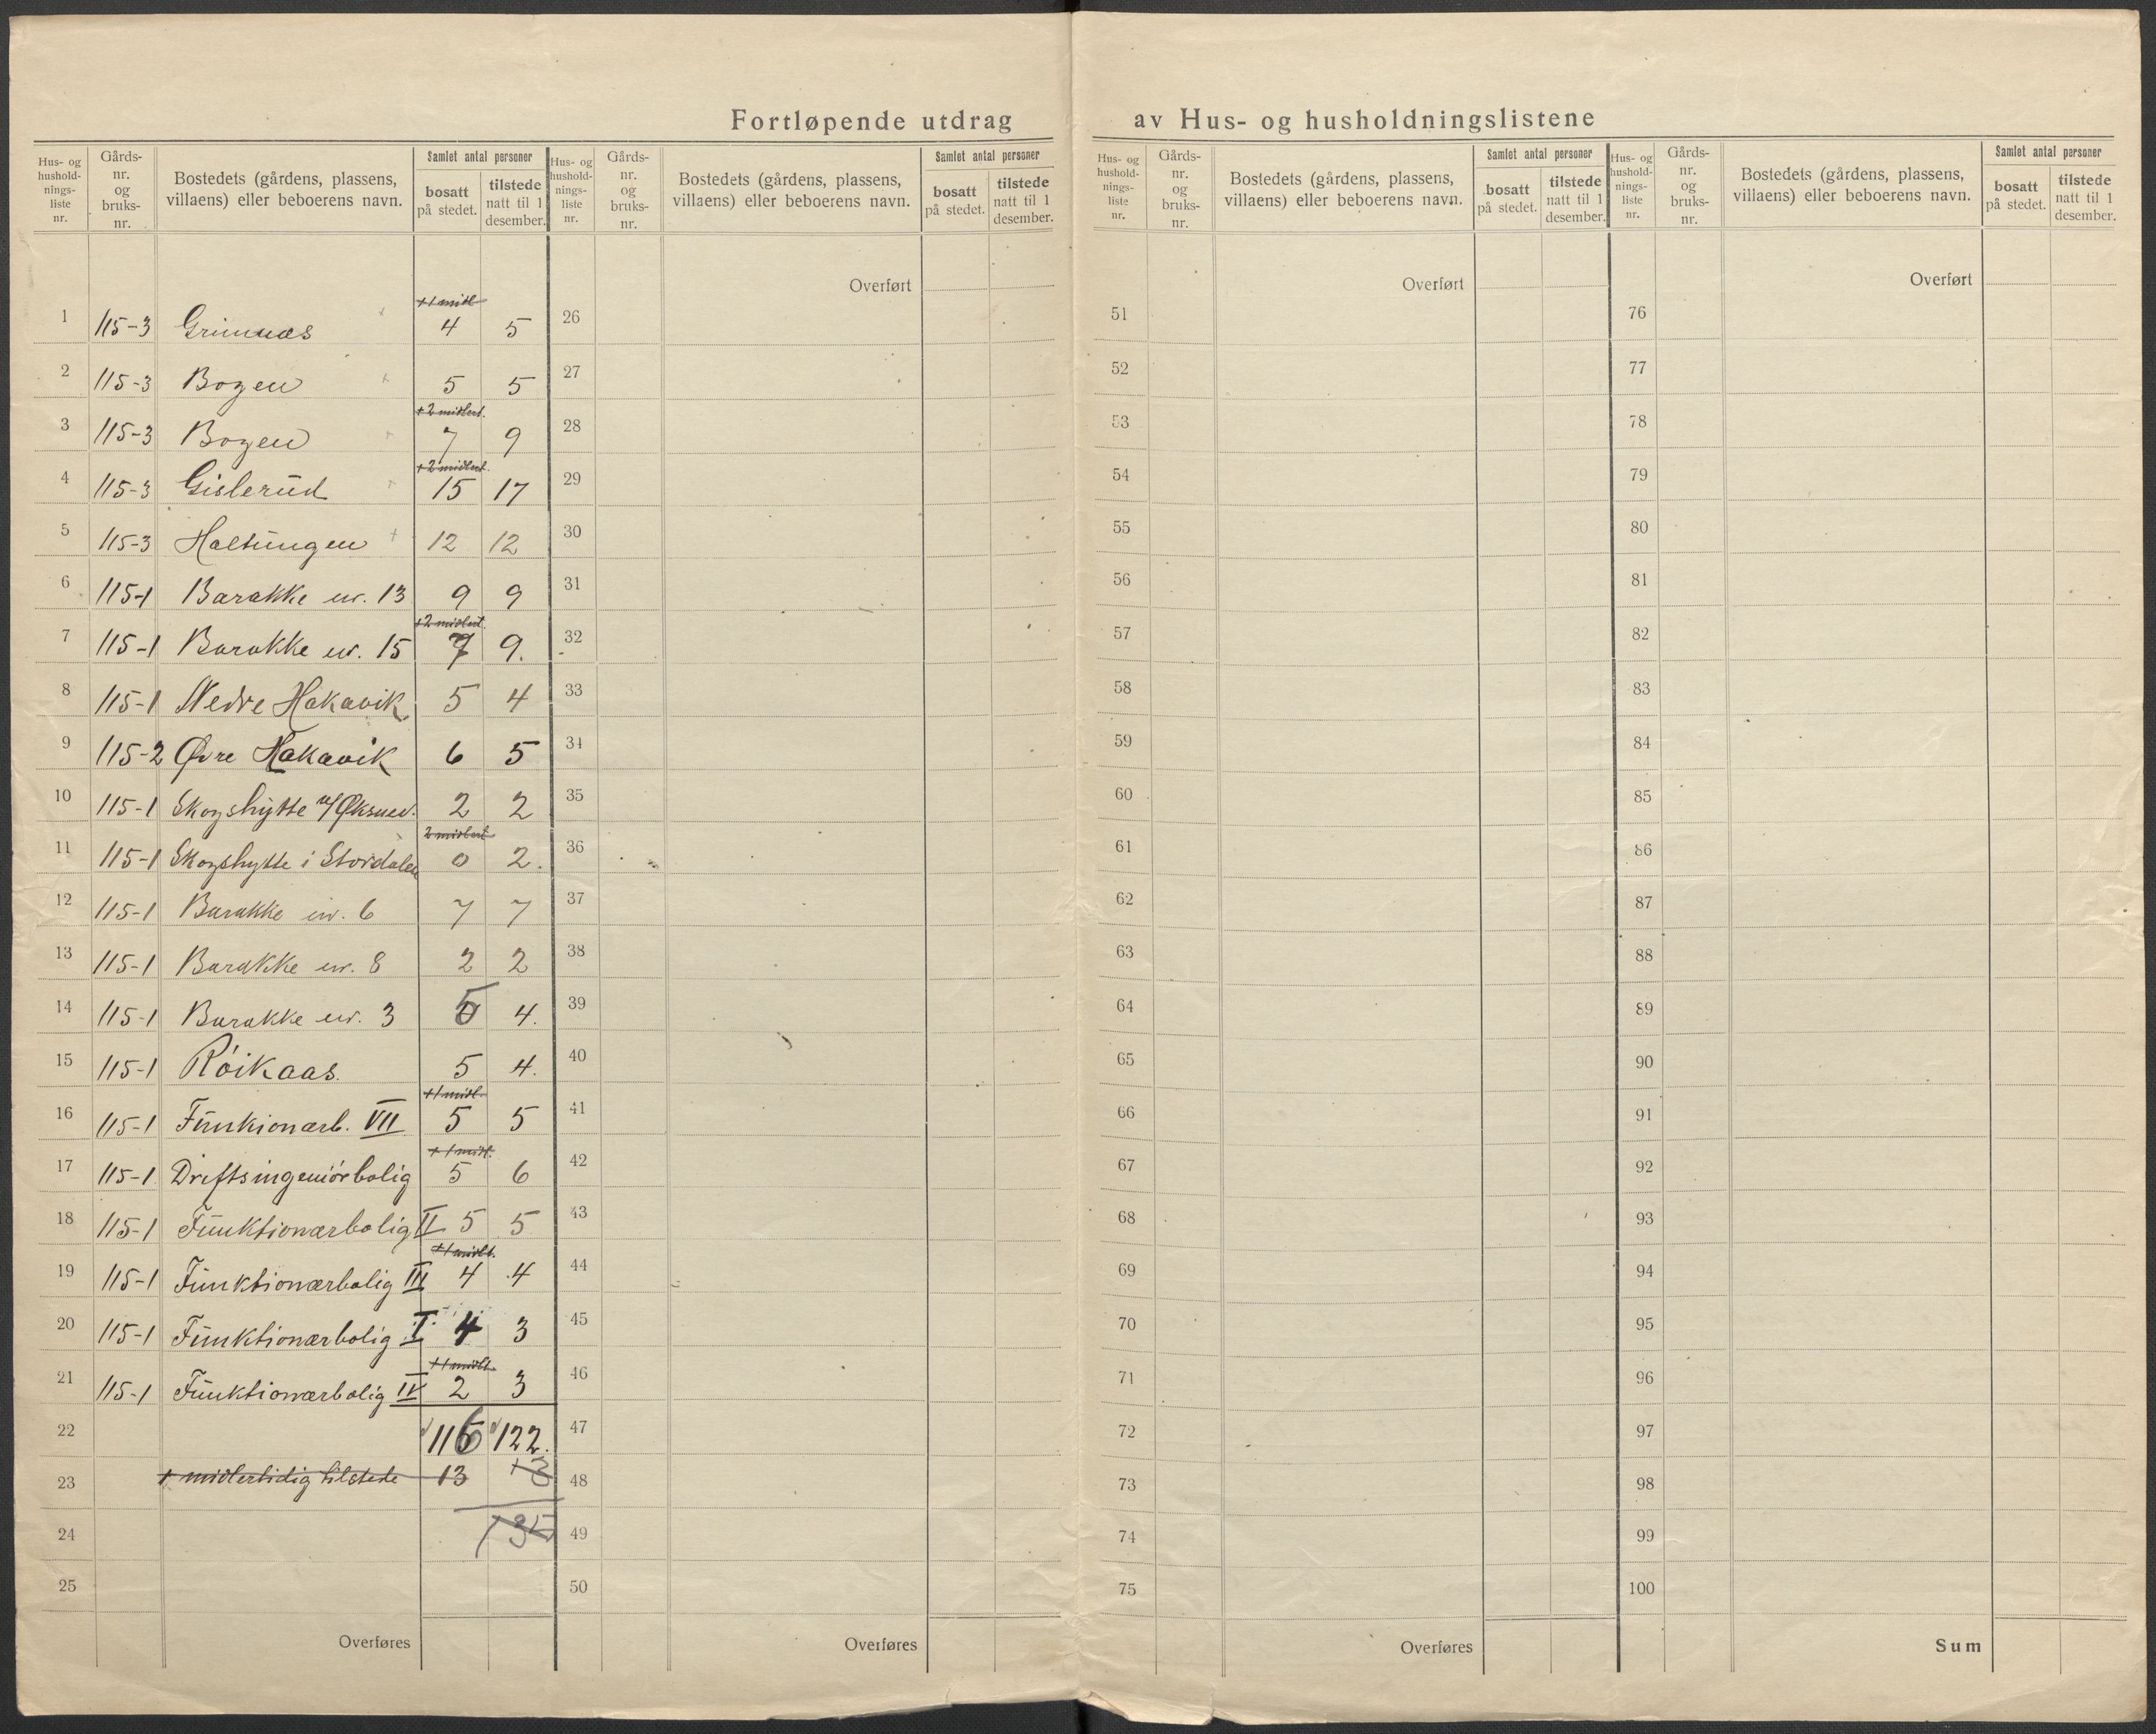 Fortløpende utdrag av Hus- og husholdningslistene
Hus- og hushold- nings- liste nr.
Gårds- nr. og bruks- nr.
Bostedets (gårdens, plassens, villaens) eller beboerens navn.
Samlet antal personer
bosatt på stedet.
tilstede natt til 1 desember.
Hus- og hushold- nings- liste nr.
Gårds- nr. og bruks- nr.
Bostedets (gårdens, plassens, villaens) eller beboerens navn.
Samlet antal personer
bosatt på stedet.
tilstede natt til 1 desember.
Hus- og hushold- nings- liste nr.
Gårds- nr. og bruks- nr.
Bostedets (gårdens, plassens, villaens) eller beboerens navn.
Samlet antal personer
bosatt på stedet.
tilstede natt til 1 desember.
Hus- og hushold- nings- liste nr.
Gårds- nr. og bruks- nr.
Bostedets (gårdens, plassens, villaens) eller beboerens navn.
Samlet antal personer
bosatt på stedet.
tilstede natt til 1 desember.
Overført Overført Overført
+1 midl
1 115-3 Grimnæs 4 5 26 51 76
2 115-3 Bogen 5 5 27 52 77
+2 midlert.
3 115-3 Bogen 7 9 28 53 78
+2 midlert.
4 115-3 Gislerud 15 17 29 54 79
5 115-3 Haltungen 12 12 30 55 80
6 115-1 Barakke nr. 13 9 9 31 56 81
+2 midlert.
7 115-1 Barakke nr. 15 7 9. 32 57 82
8 115-1 Nedre Hakavik 5 4 33 58 83
9 115-2 Øvre Hakavik 6 5 34 59 84
10 115-1 Skogshytte v/ 2 2 35 60 85
2 midlert
11 115-1 Skogshytte i Stordalen 0 2. 36 61 86
12 115-1 Barakke nr. 6 7 7 37 62 87
13 115-1 Barakke nr. 8 2 2 38 63 88
14 115-1 Barakke nr. 3 5 4. 39 64 89
15 115-1 Röikaas. 5 4. 40 65 90
+1 midl.
16 115-1 Funkionærb. VII 5 5 41 66 91
+1 midl.
17 115-1 Driftsingeniörbolig 5 6 42 67 92
18 115-1 Funktionærbolig II 5 5 43 68 93
+1 midlt.
19 115-1 Funktionærbolig III 4 4 44 69 94
20 115-1 Funktionærbolig I 4 3 45 70 95
+1 midlt.
21 115-1 Funktionærbolig IV 2 3 46 71 96
22 116 122. 47 72 97
23 + midlertidig tilstede 13 48 73 98
24 135 49 74 99
25 50 75 100
Overføres Overføres Overføres Sum